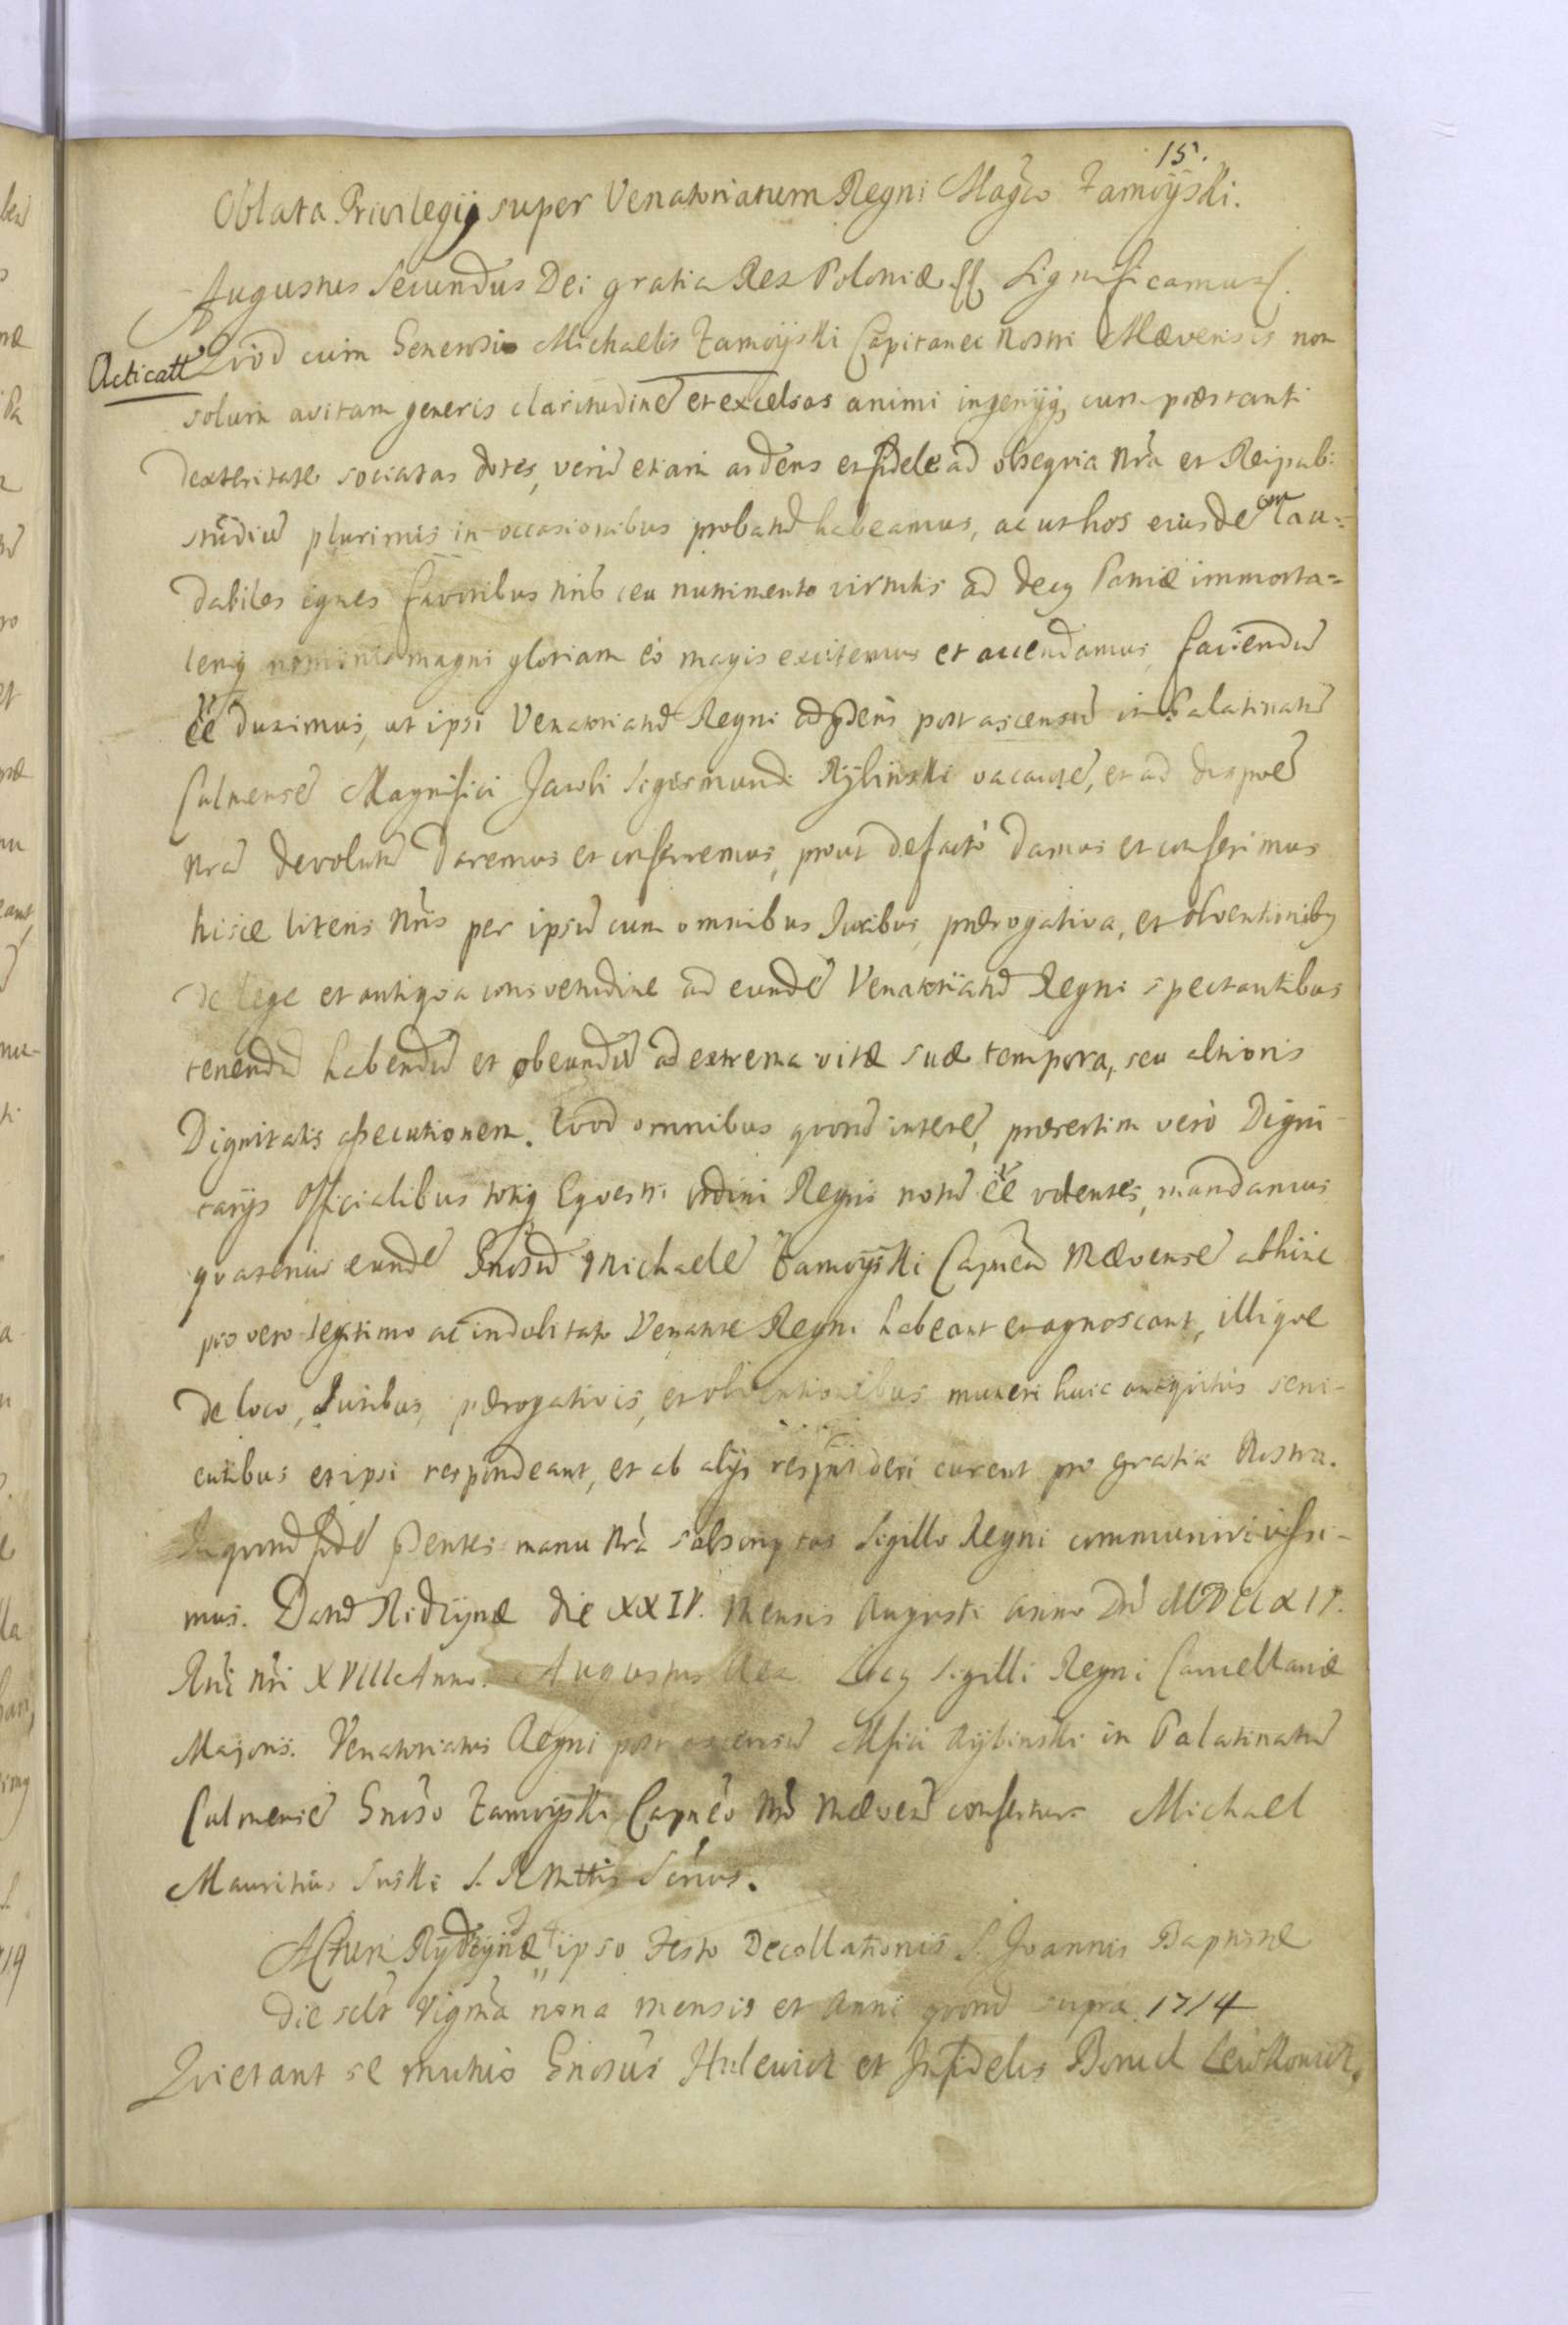 15.
Oblata Privilegij super Venatoriatum Regni Magco Zamoyski.
Augustus Secundus Dei gratia Rex Poloniæ Significamus.
Acticatt
Qvod cum Generosi Michaelis Zamoyski Capitanei Nostri Mævensis non
solum avitam generis claritudinē et excelsas animi ingenijq, cum præstanti
dexteritate sociatas dotes, verū etiam ardens et fidele ad obseqvia nra et Reipub:
studiū plurimis in occasionibus probatū habeamus, ac ut hos eiusdē con lau=
dabiles ignes favoribus nris ceu nutrimento virtutis ad decq Patriæ immorta=
lemq nominis magni gloriam eò magis excitemus et accendamus, faciendū
ee duximus, ut ipsi Venatoriatū Regni ad pdens post ascensū in Palatinatū
Culmensē Magnifici Jacobi Sigismundi Rÿbinski vacantē, et ad dispoē
nrā devolutū daremus et conferremus, prout de facto damus et conferimus
hisce literis nris per ipsū cum omnibus Juribus, prærogativa, et obventionibq
de lege et antiqva consvetudine ad eundē Venatoriatū Regni spectantibus
tenendū habendū et obeundū ad extrema vitæ suæ tempora, seu altioris
Dignitatis assecutionem. Qvod omnibus qvorū interē, præsertim verò Digni-
tarijs Officialibus totiq Eqvestri ordini Regni notū ee volentes, mandamus
qvatenus eundē Gnosū Michaelē Zamoyski Capneū Mævensē abhinc
pro vero legitimo ac indubitato Venatore Regni habeant et agnoscant, illiqve
de loco, Juribus, prærogativis, et obventionibus muneri huic antiqvitus servi-
entibus et ipsi respondeant, et ab alijs responderi curent pro gratia Nostra.
In qvorū fidē pntes manu nrà subscriptas Sigillo Regni communiri jussi-
mus. Datū Ridzynæ die XXIV. Mensis Augusti Anno Dni MDCCXIV.
Rni nri XVIII Anno. Augustus Rex Locq Sigilli Regni Cancellariæ
Majoris. Venatoriatus Regni post ascensū Mfici Rybinski in Palatinatū
Culmensē Gnoso Zamoyski Capneo nro Mævensi confertur. Michael
Mauritius Suski S. R. Mttis Scrius.
Actum Rydzynæ ipso Festo Decollationis S. Joannis Baptistæ
die sclt Vigma nona mensis et Anni qvorū supra 1714
Qvietant se mutuò Gnosus Hulewicz et Infidelis Boruch Lewkowicz.